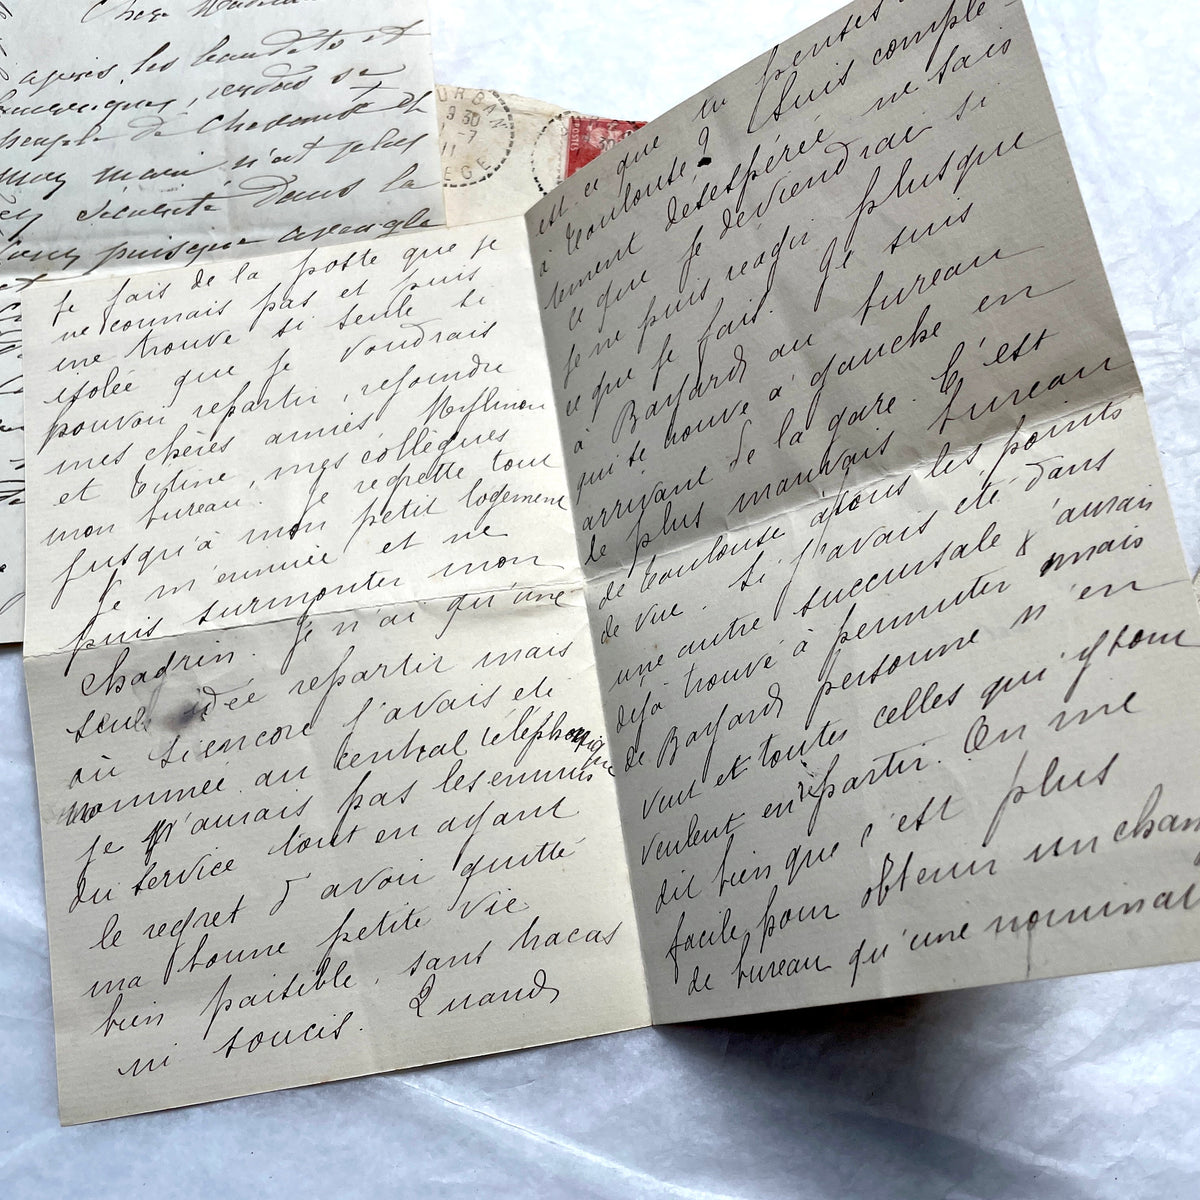 Chère Madame
après, les
de
main n'est plus
sécurité dans la
puisque aveugle
ORBAN
9 30
-7
11
EGE
POSTES
je fais de la poste que je
ne connais pas et puis
me trouve si seule si
isolée que je voudrais
pouvoir repartir, rejoindre
mes chères amies
et Titine, mes collègues
mon bureau. Je regrette tout
jusqu'à mon petit logement
Je m'ennuie et ne
puis surmonter mon
chagrin. Je n'ai qu'une
seule idée repartir mais
où si encore j'avais été
nommée au central téléphonique
je n'aurais pas les ennuis
du service tout en ayant
le regret d'avoir quitté
ma bonne petite vie
bien paisible, sans tracas
ni soucis. Quand
est-ce que tu penses
à Toulouse? Suis complè-
tement désespérée ne sais
ce que je deviendrai si
je ne puis réagir plus que
ce que je fais. Je suis
à Bayard au bureau
qui se trouve à gauche en
arrivant de la gare. C'est
le plus mauvais bureau
de Toulouse à tous les points
de vue. Si j'avais été dans
une autre succursale j'aurais
déjà trouvé à permuter mais
de Bayard personne n'en
veut et toutes celles qui y sont
veulent en repartir. On me
dit bien que c'est plus
facile pour obtenir un chan
de bureau qu'une nominat